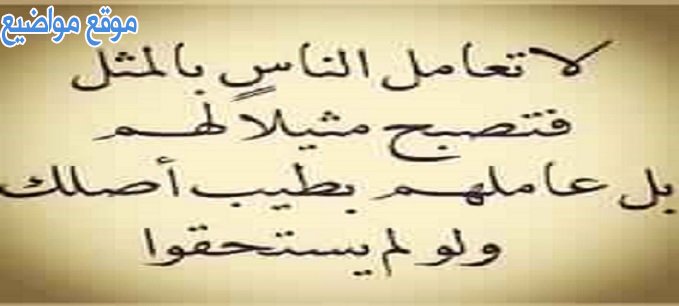 موقع مواضيع
لا تعامل الناسِ بالمثل
فتصبح مثيلاً لهم
بل عاملهم بطيب أصلك
ولو لم يستحقوا